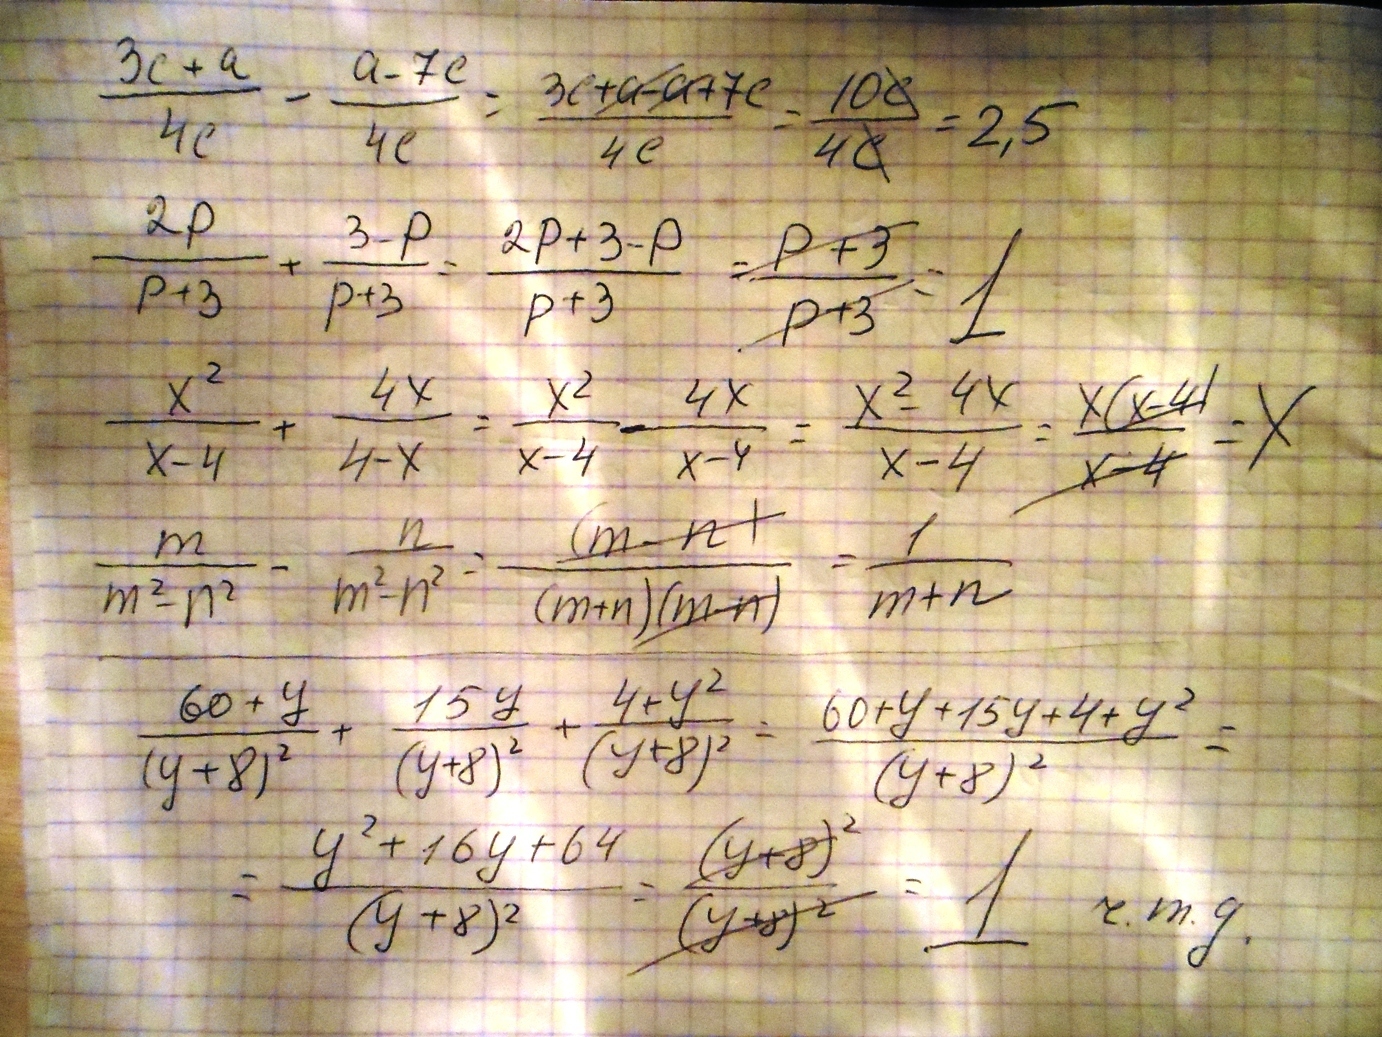 (3c+a)/(4c) - (a-7c)/(4c) = (3c+a-a+7c)/(4c) = (10c)/(4c) = 2,5
(2p)/(p+3) + (3-p)/(p+3) = (2p+3-p)/(p+3) = (p+3)/(p+3) = 1
(x²)/(x-4) + (4x)/(4-x) = (x²)/(x-4) - (4x)/(x-4) = (x²-4x)/(x-4) = (x(x-4))/(x-4) = x
(m)/(m²-n²) - (n)/(m²-n²) = (m-n)/((m+n)(m-n)) = 1/(m+n)
(60+y)/((y+8)²) + (15y)/((y+8)²) + (4+y²)/((y+8)²) = (60+y+15y+4+y²)/((y+8)²) =
= (y²+16y+64)/((y+8)²) = ((y+8)²)/((y+8)²) = 1 ч.т.д.